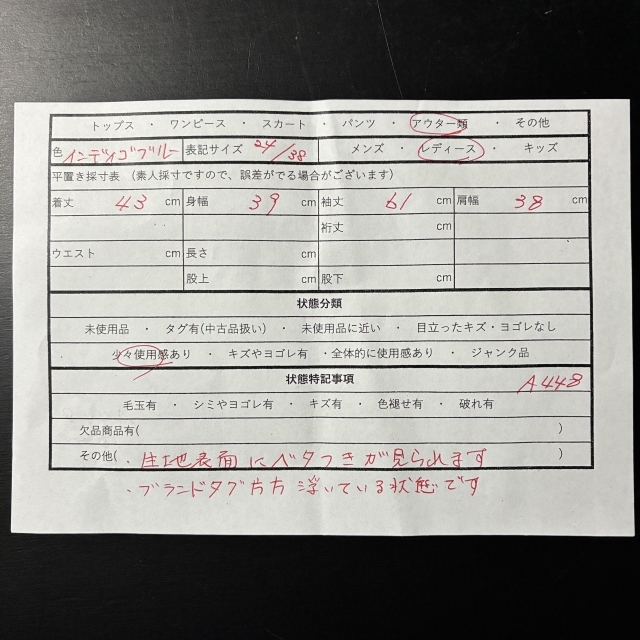 トップス ・ ワンピース ・ スカート ・ パンツ ・ アウター類 ・ その他
色 インディゴブルー 表記サイズ 24/38 メンズ ・ レディース ・ キッズ
平置き採寸表 (素人採寸ですので、誤差がでる場合がございます)
着丈 43 cm 身幅 39 cm 袖丈 61 cm 肩幅 38 cm
裄丈 cm
ウエスト cm 長さ cm
股上 cm 股下 cm
状態分類
未使用品 ・ タグ有(中古品扱い) ・ 未使用品に近い ・ 目立ったキズ・ヨゴレなし
少々使用感あり ・ キズやヨゴレ有 ・全体的に使用感あり ・ ジャンク品
状態特記事項 A448
毛玉有 ・ シミやヨゴレ有 ・ キズ有 ・ 色褪せ有 ・ 破れ有
欠品商品有( )
その他( ・生地表面にベタつきが見られます )
・ブランドタグ片方浮いている状態です